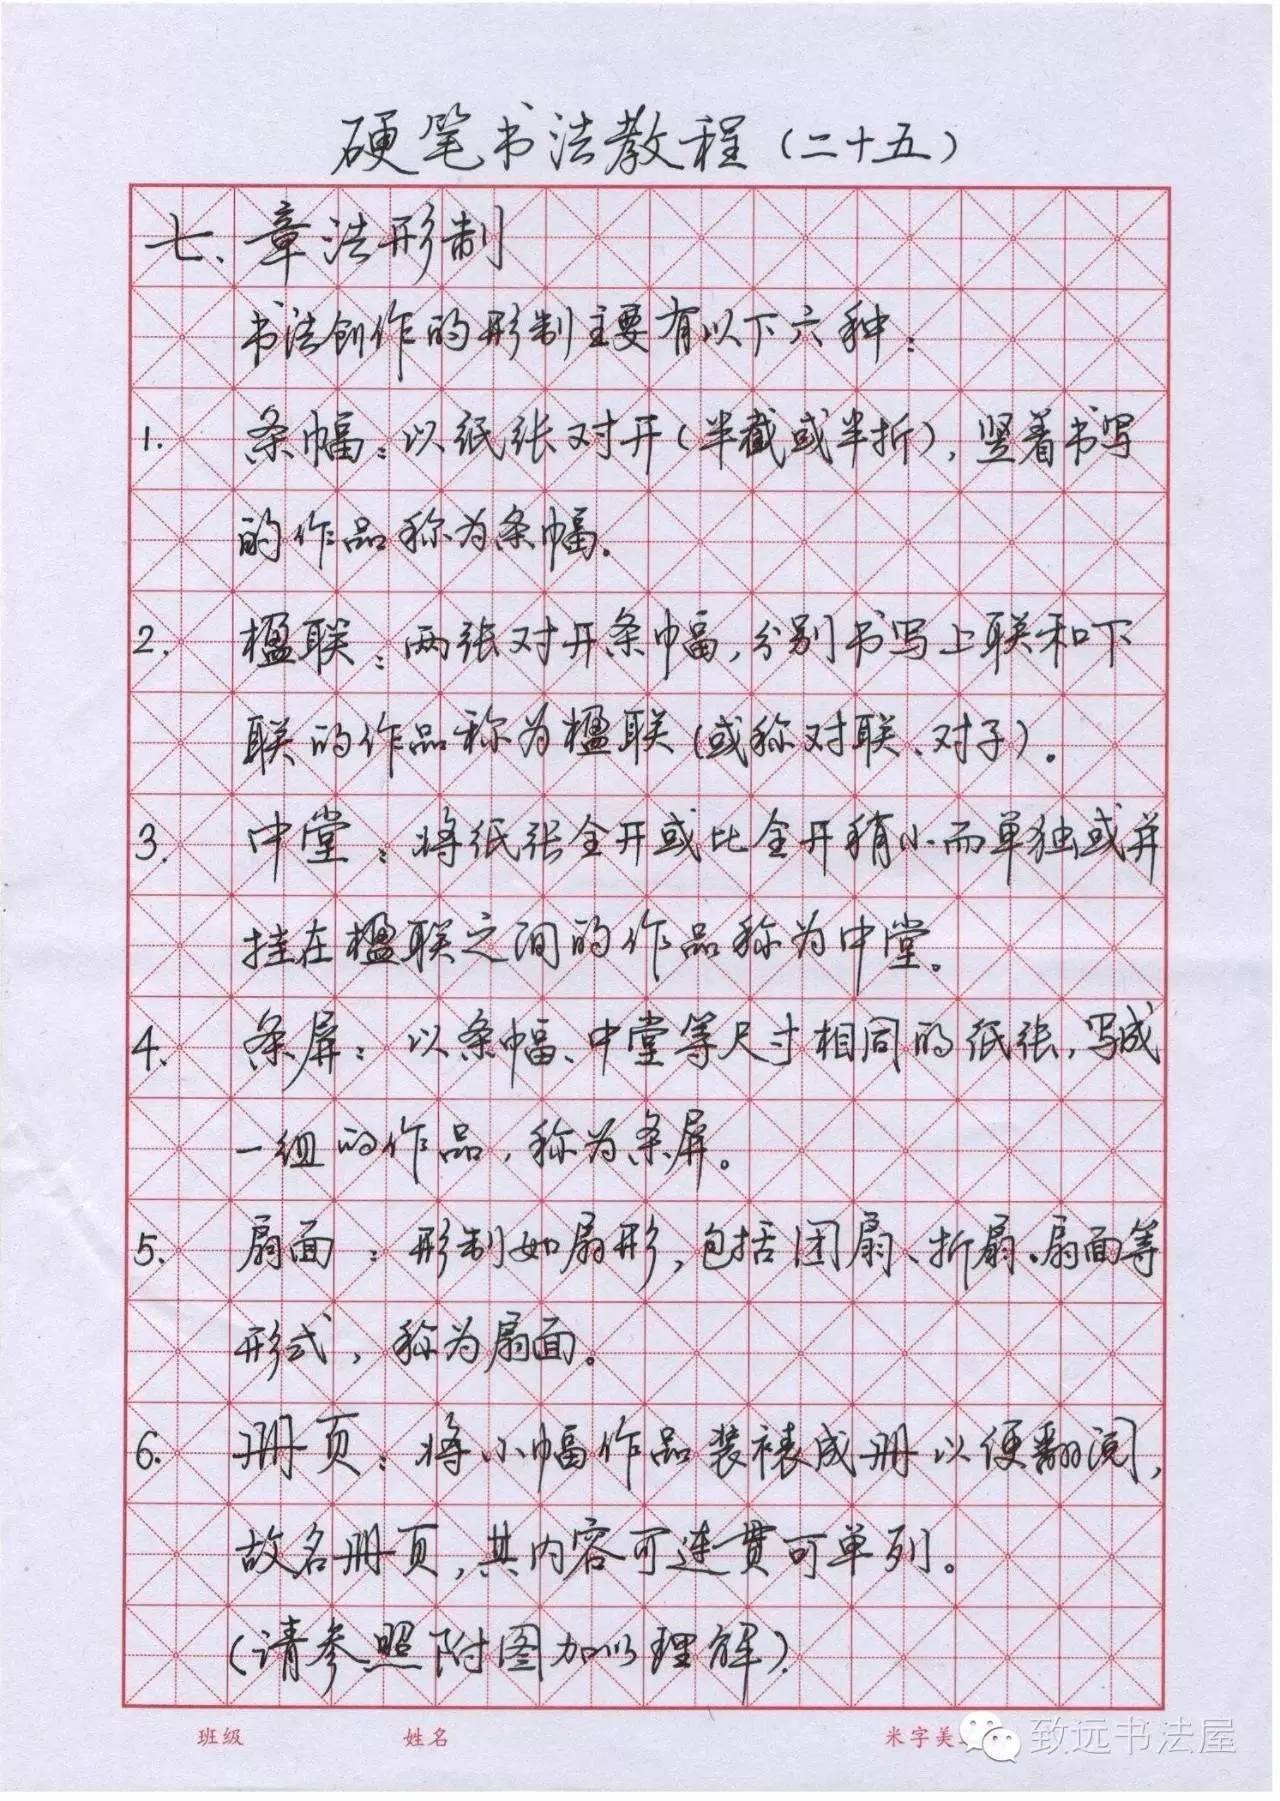 硬笔书法教程（二十五）
七、章法形制
书法创作的形制主要有以下六种：
1. 条幅：以纸张对开（半截或半折），竖着书写
的作品称为条幅。
2. 楹联：两张对开条幅，分别书写上联和下
联的作品称为楹联（或称对联、对子）。
3. 中堂：将纸张全开或比全开稍小而单独或并
挂在楹联之间的作品称为中堂。
4. 条屏：以条幅、中堂等尺寸相同的纸张，写成
一组的作品，称为条屏。
5. 扇面：形制如扇形，包括团扇、折扇、扇面等
形式，称为扇面。
6. 册页：将小幅作品装裱成册以便翻阅，
故名册页，其内容可连贯可单列。
（请参照附图加以理解）.
班级 姓名 米字美
致远书法屋